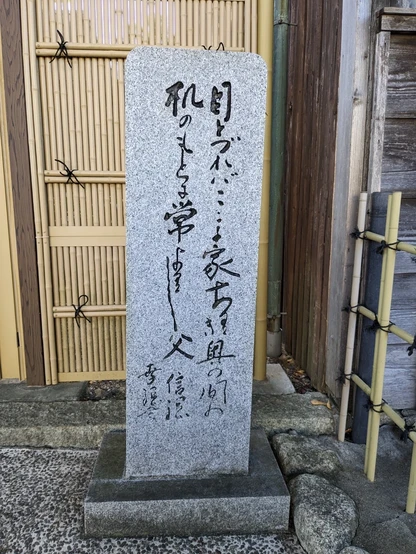 目とづればここに家ありき奥の間の
机のもとに常よりし父
信綱